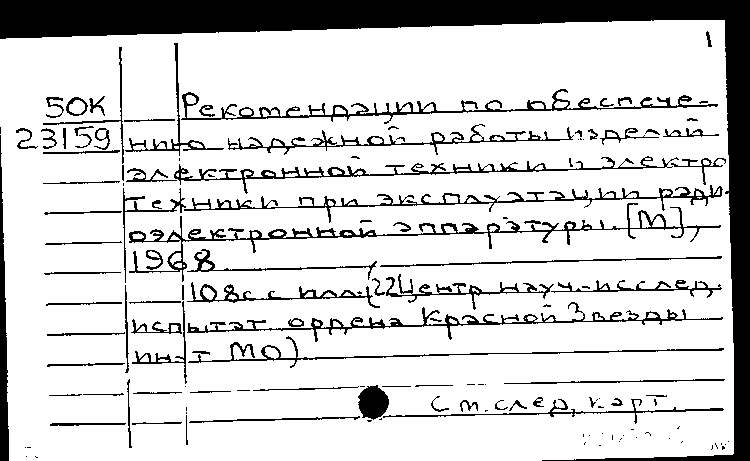 1
50К
Рекомендации по обеспече-
23159
нию надежной работы изделий
электронной техники и электро
техники при эксплуатации ради-
оэлектронной аппаратуры. [М],
1968
108с с илл. (22 Центр науч.-исслед.
испытат ордена Красной Звезды
ин-т МО)
См. след. карт.